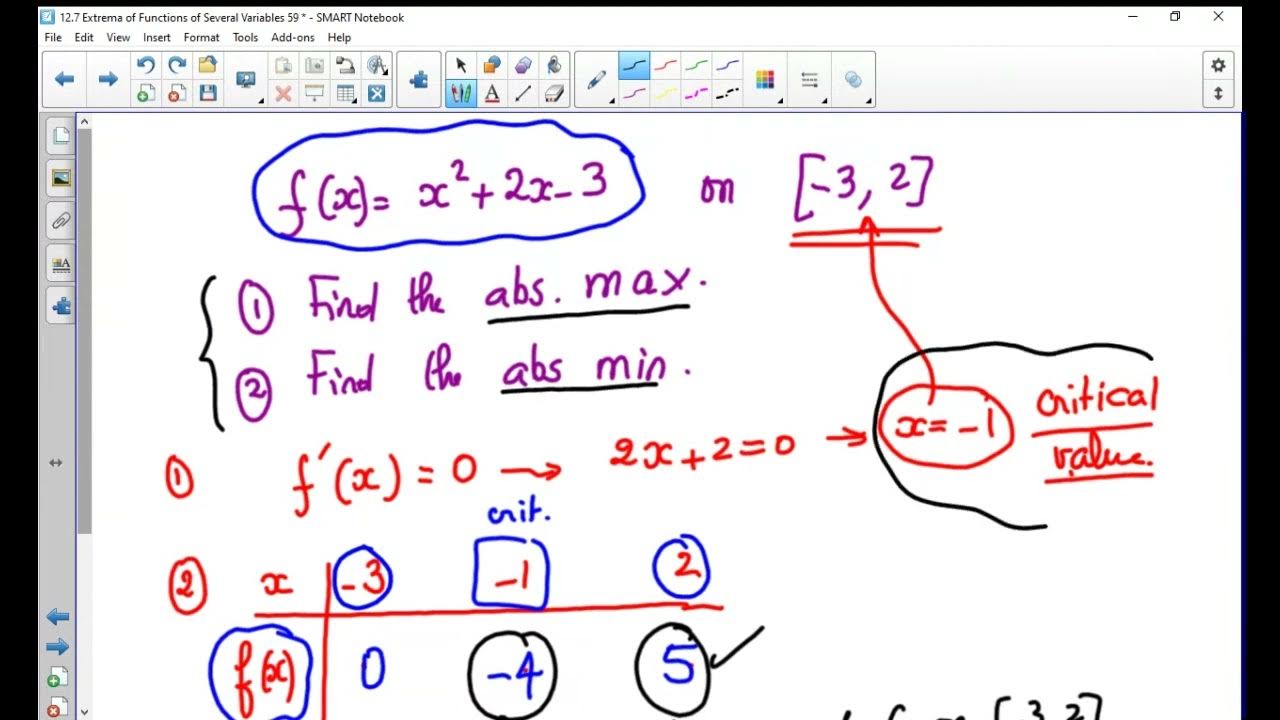 12.7 Extrema of Functions of Several Variables 59 * - SMART Notebook
File Edit View Insert Format Tools Add-ons Help
f(x) = x² + 2x - 3 on [-3, 2]
① Find the abs. max.
② Find the abs min.
① f'(x) = 0 → 2x + 2 = 0 → x = -1 critical value.
crit.
② x -3 -1 2
f(x) 0 -4 5 ✓
[-3, 2]